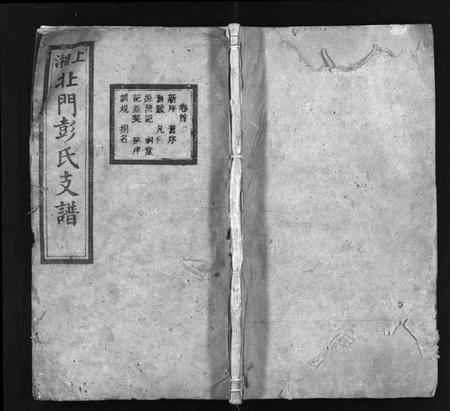 上湘
北門彭氏支譜
卷首
新序 舊序
舊跋 凡例
源流記 祠堂
記並契 班序
訓規 捐名